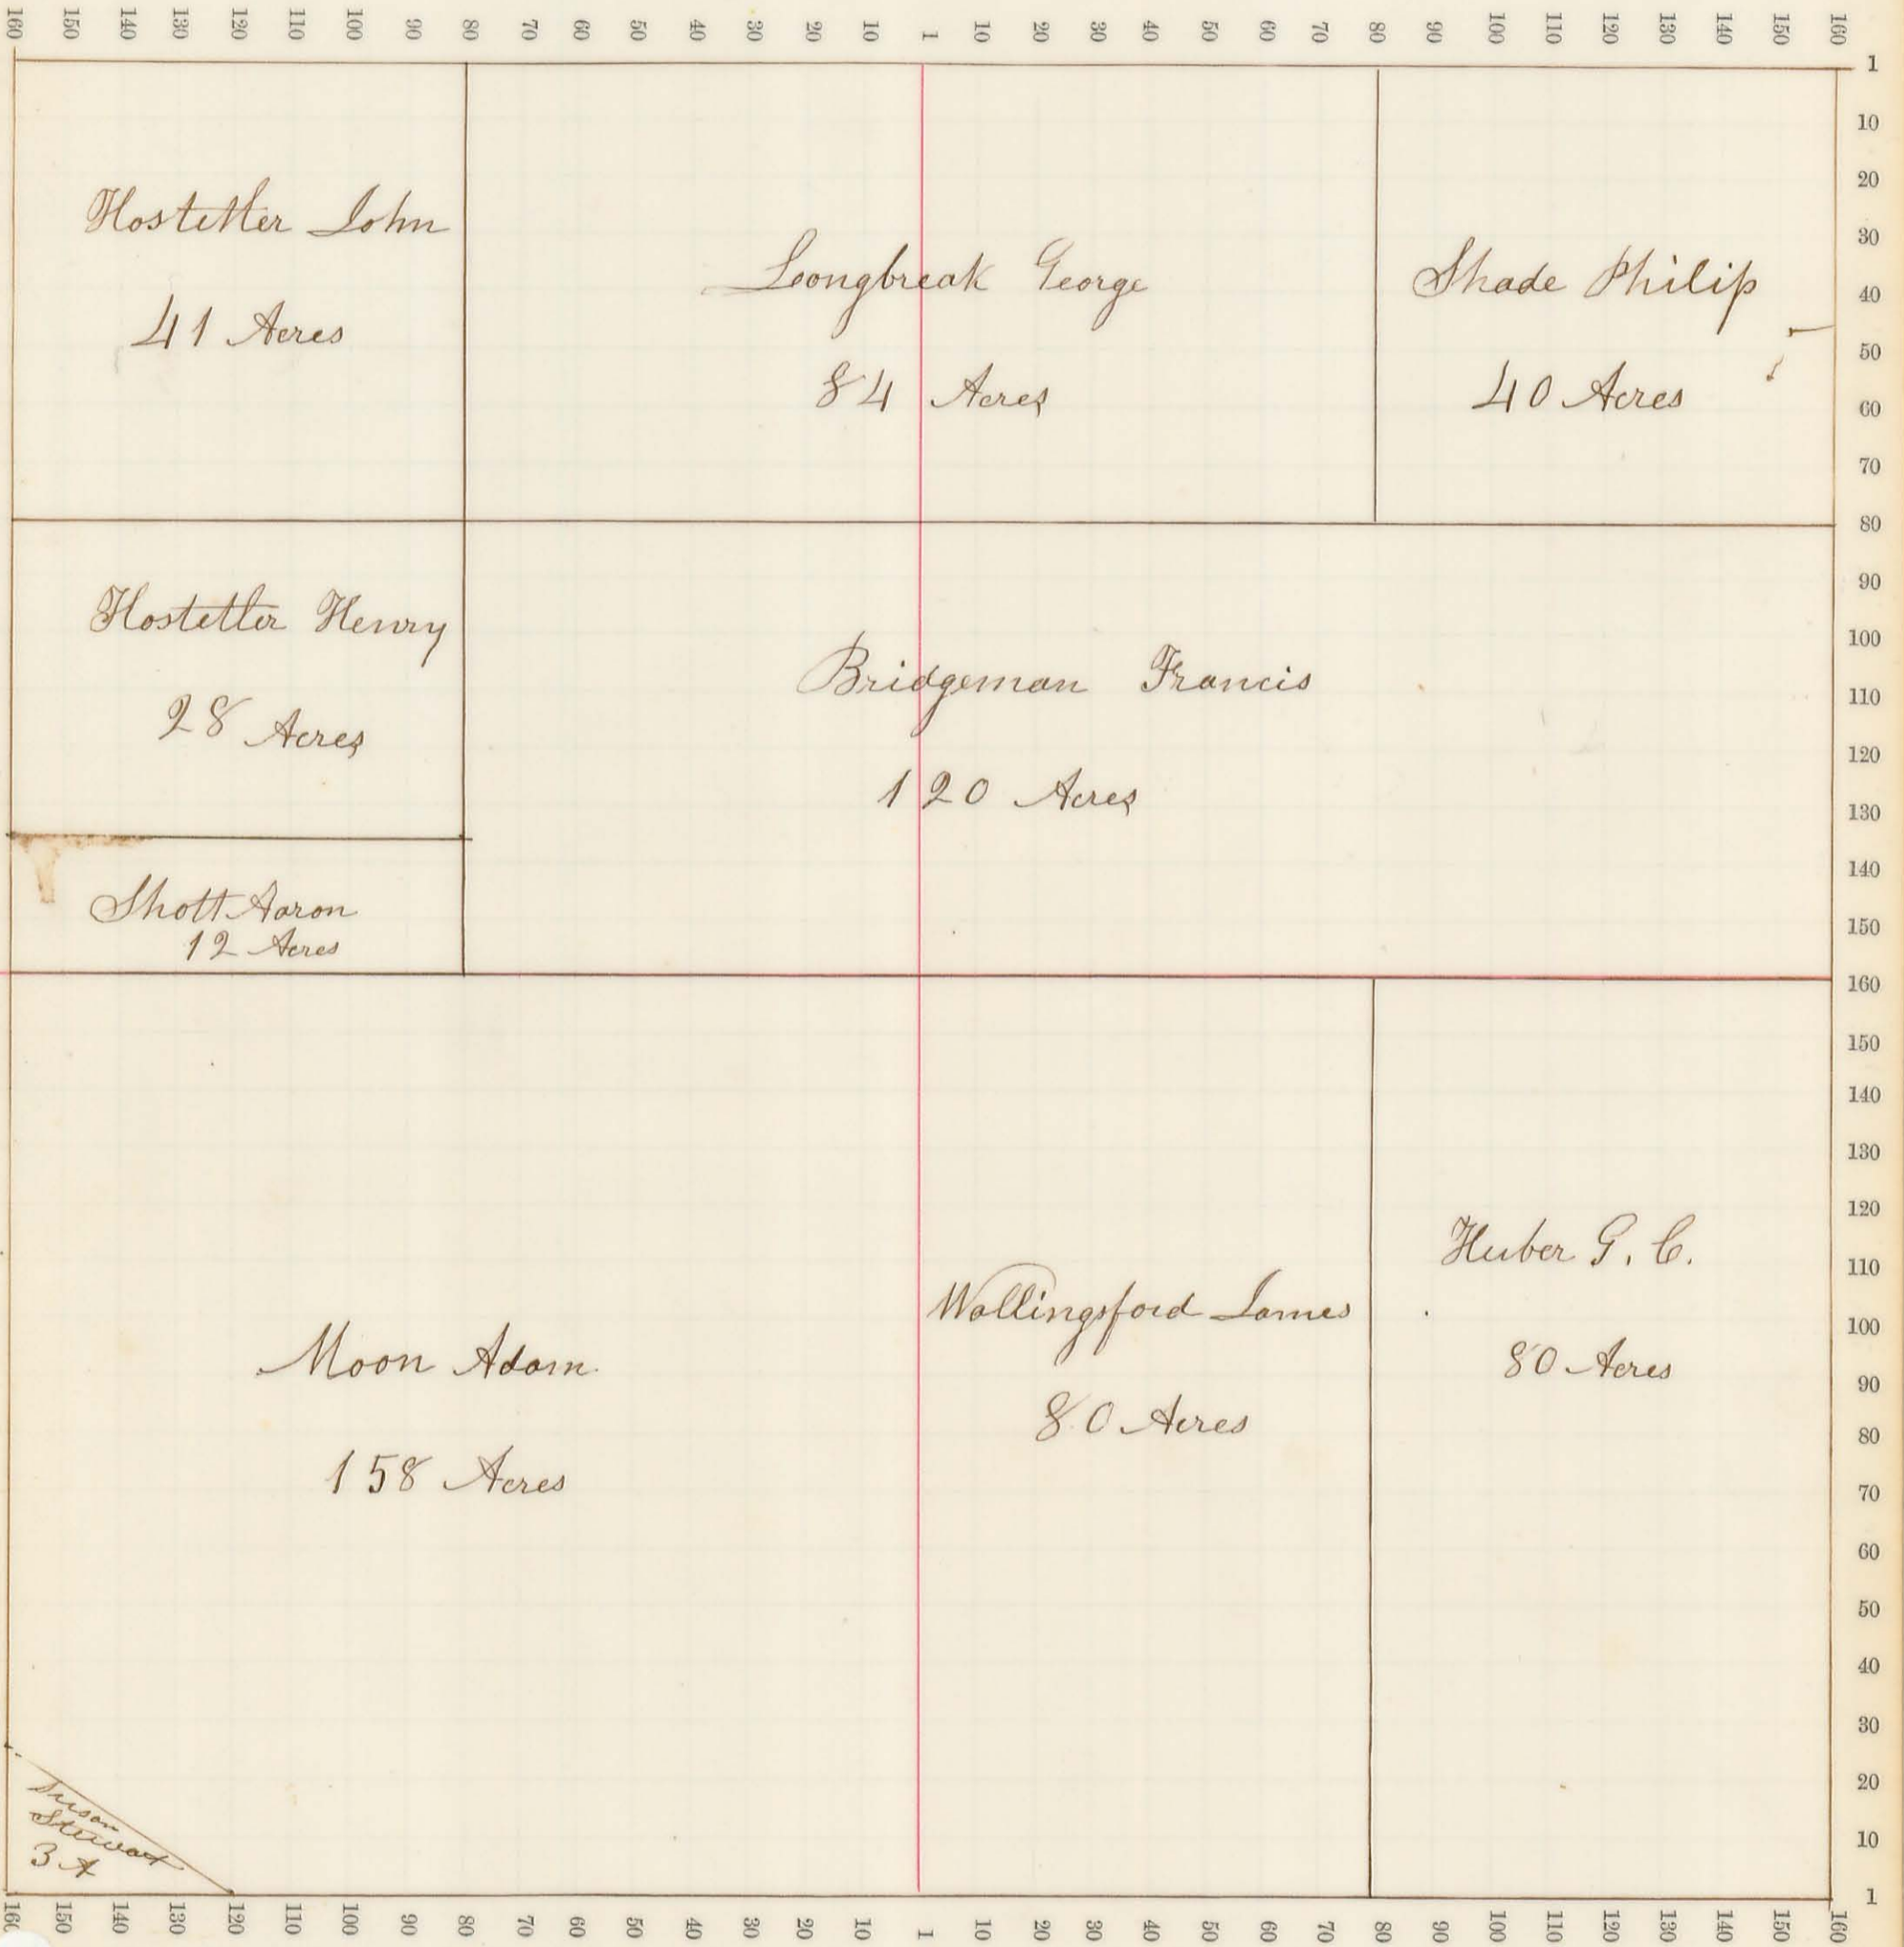 160 150 140 130 120 110 100 90 80 70 60 50 40 30 20 10 1 10 20 30 40 50 60 70 80 90 100 110 120 130 140 150 160
1
10
20
30
40
50
60
70
80
90
100
110
120
130
140
150
160
150
140
130
120
110
100
90
80
70
60
50
40
30
20
10
1
Hostetler John
41 Acres
Loongbreak George
84 Acres
Shade Philip
40 Acres
Hostetler Henry
28 Acres
Bridgeman Francis
120 Acres
Shott Aaron
12 Acres
Moon Adam
158 Acres
Wallingsford James
80 Acres
Huber G. C.
80 Acres
Stewart
3 A
160 150 140 130 120 110 100 90 80 70 60 50 40 30 20 10 1 10 20 30 40 50 60 70 80 90 100 110 120 130 140 150 160